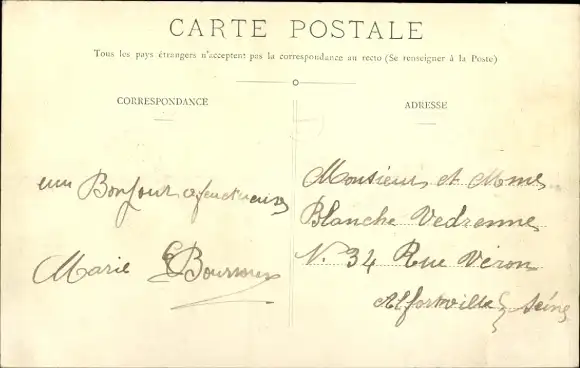 CARTE POSTALE
Tous les pays étrangers n'acceptent pas la correspondance au recto (Se renseigner à la Poste)
CORRESPONDANCE
un Bonjour afectueux
Marie
ADRESSE
Monsieur et Mme
Blanche Vedrenne
N. 34 Rue Véron
Alfortville Seine